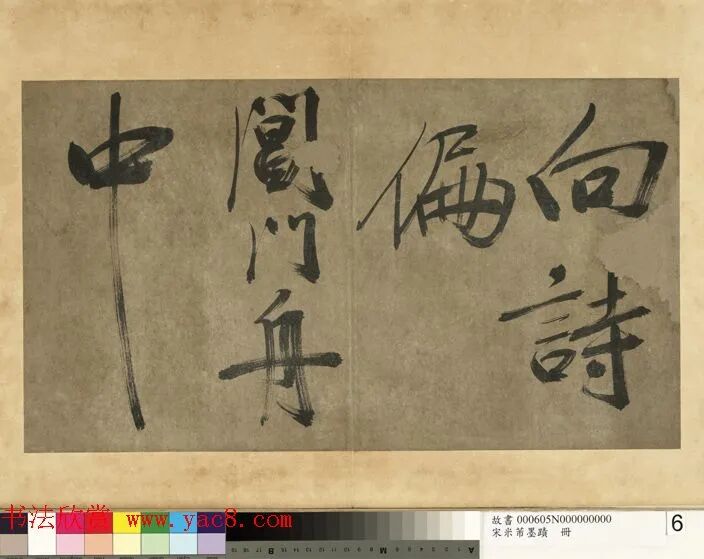 向詩
偏
閶門舟
中
书法欣赏 www.yac8.com
故書 000605N000000000
宋米芾墨蹟　冊
6